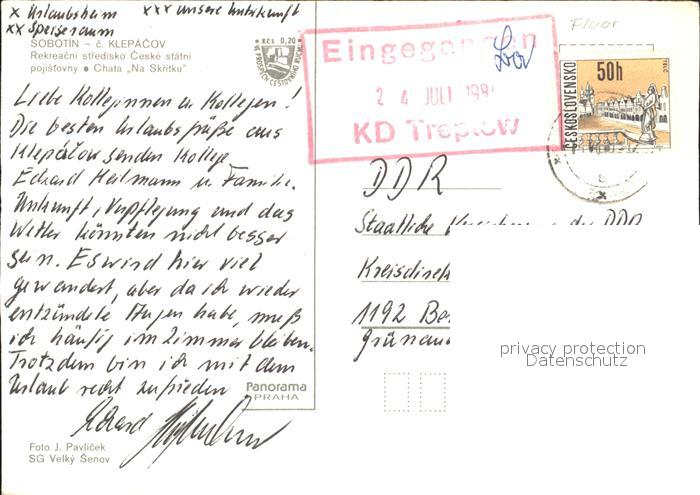 x Urlaubsheim xxx unsere Unterkunft
xx Speiseraum
SOBOTÍN – č. KLEPÁČOV
Rekreační středisko České státní
pojišťovny • Chata „Na Skřítku"
Kčs 0,20
Liebe Kolleginnen u. Kollegen!
Die besten Urlaubsgrüße aus
Klepáčov senden Kollege
Eckard Heilmann u. Familie.
Unkunft, Verpflegung und das
Wetter könnten nicht besser
sein. Es wird hier viel
gewandert, aber da ich wieder
entzündete Augen habe, muß
ich häufig im Zimmer bleiben.
Trotzdem bin ich mit dem
Urlaub recht zufrieden
Eckard
Panorama
PRAHA
Foto J. Pavlíček
SG Velký Šenov
Floor
Eingegangen
24 JULI 198
KD Treptow
ČESKOSLOVENSKO
50h
TELČ
DDR
Staatliche der DDR
Kreisdirek
1192 Be
Grünau
privacy protection
Datenschutz